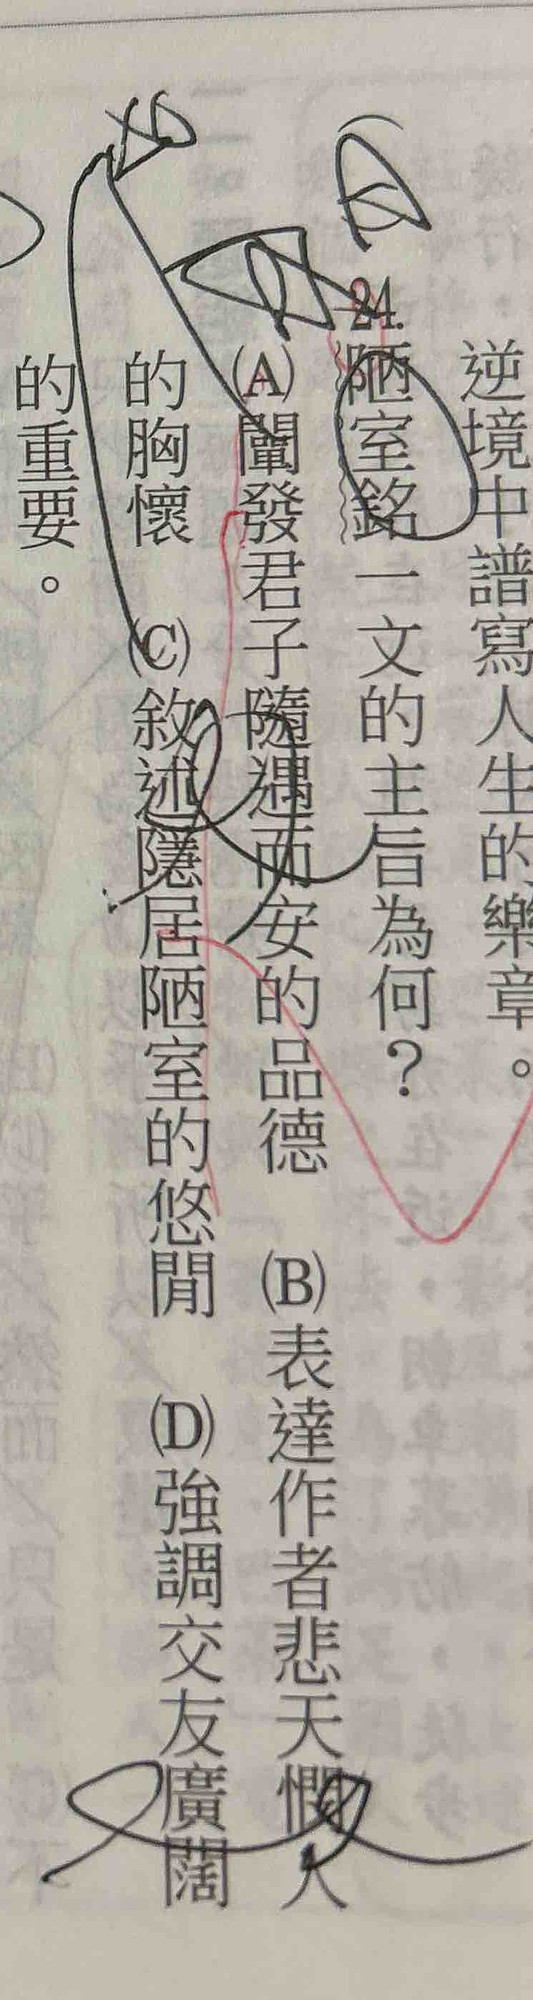 逆境中譜寫人生的樂章。
24.陋室銘一文的主旨為何？
(A)闡發君子隨遇而安的品德 (B)表達作者悲天憫人
的胸懷 (C)敘述隱居陋室的悠閒 (D)強調交友廣闊
的重要。